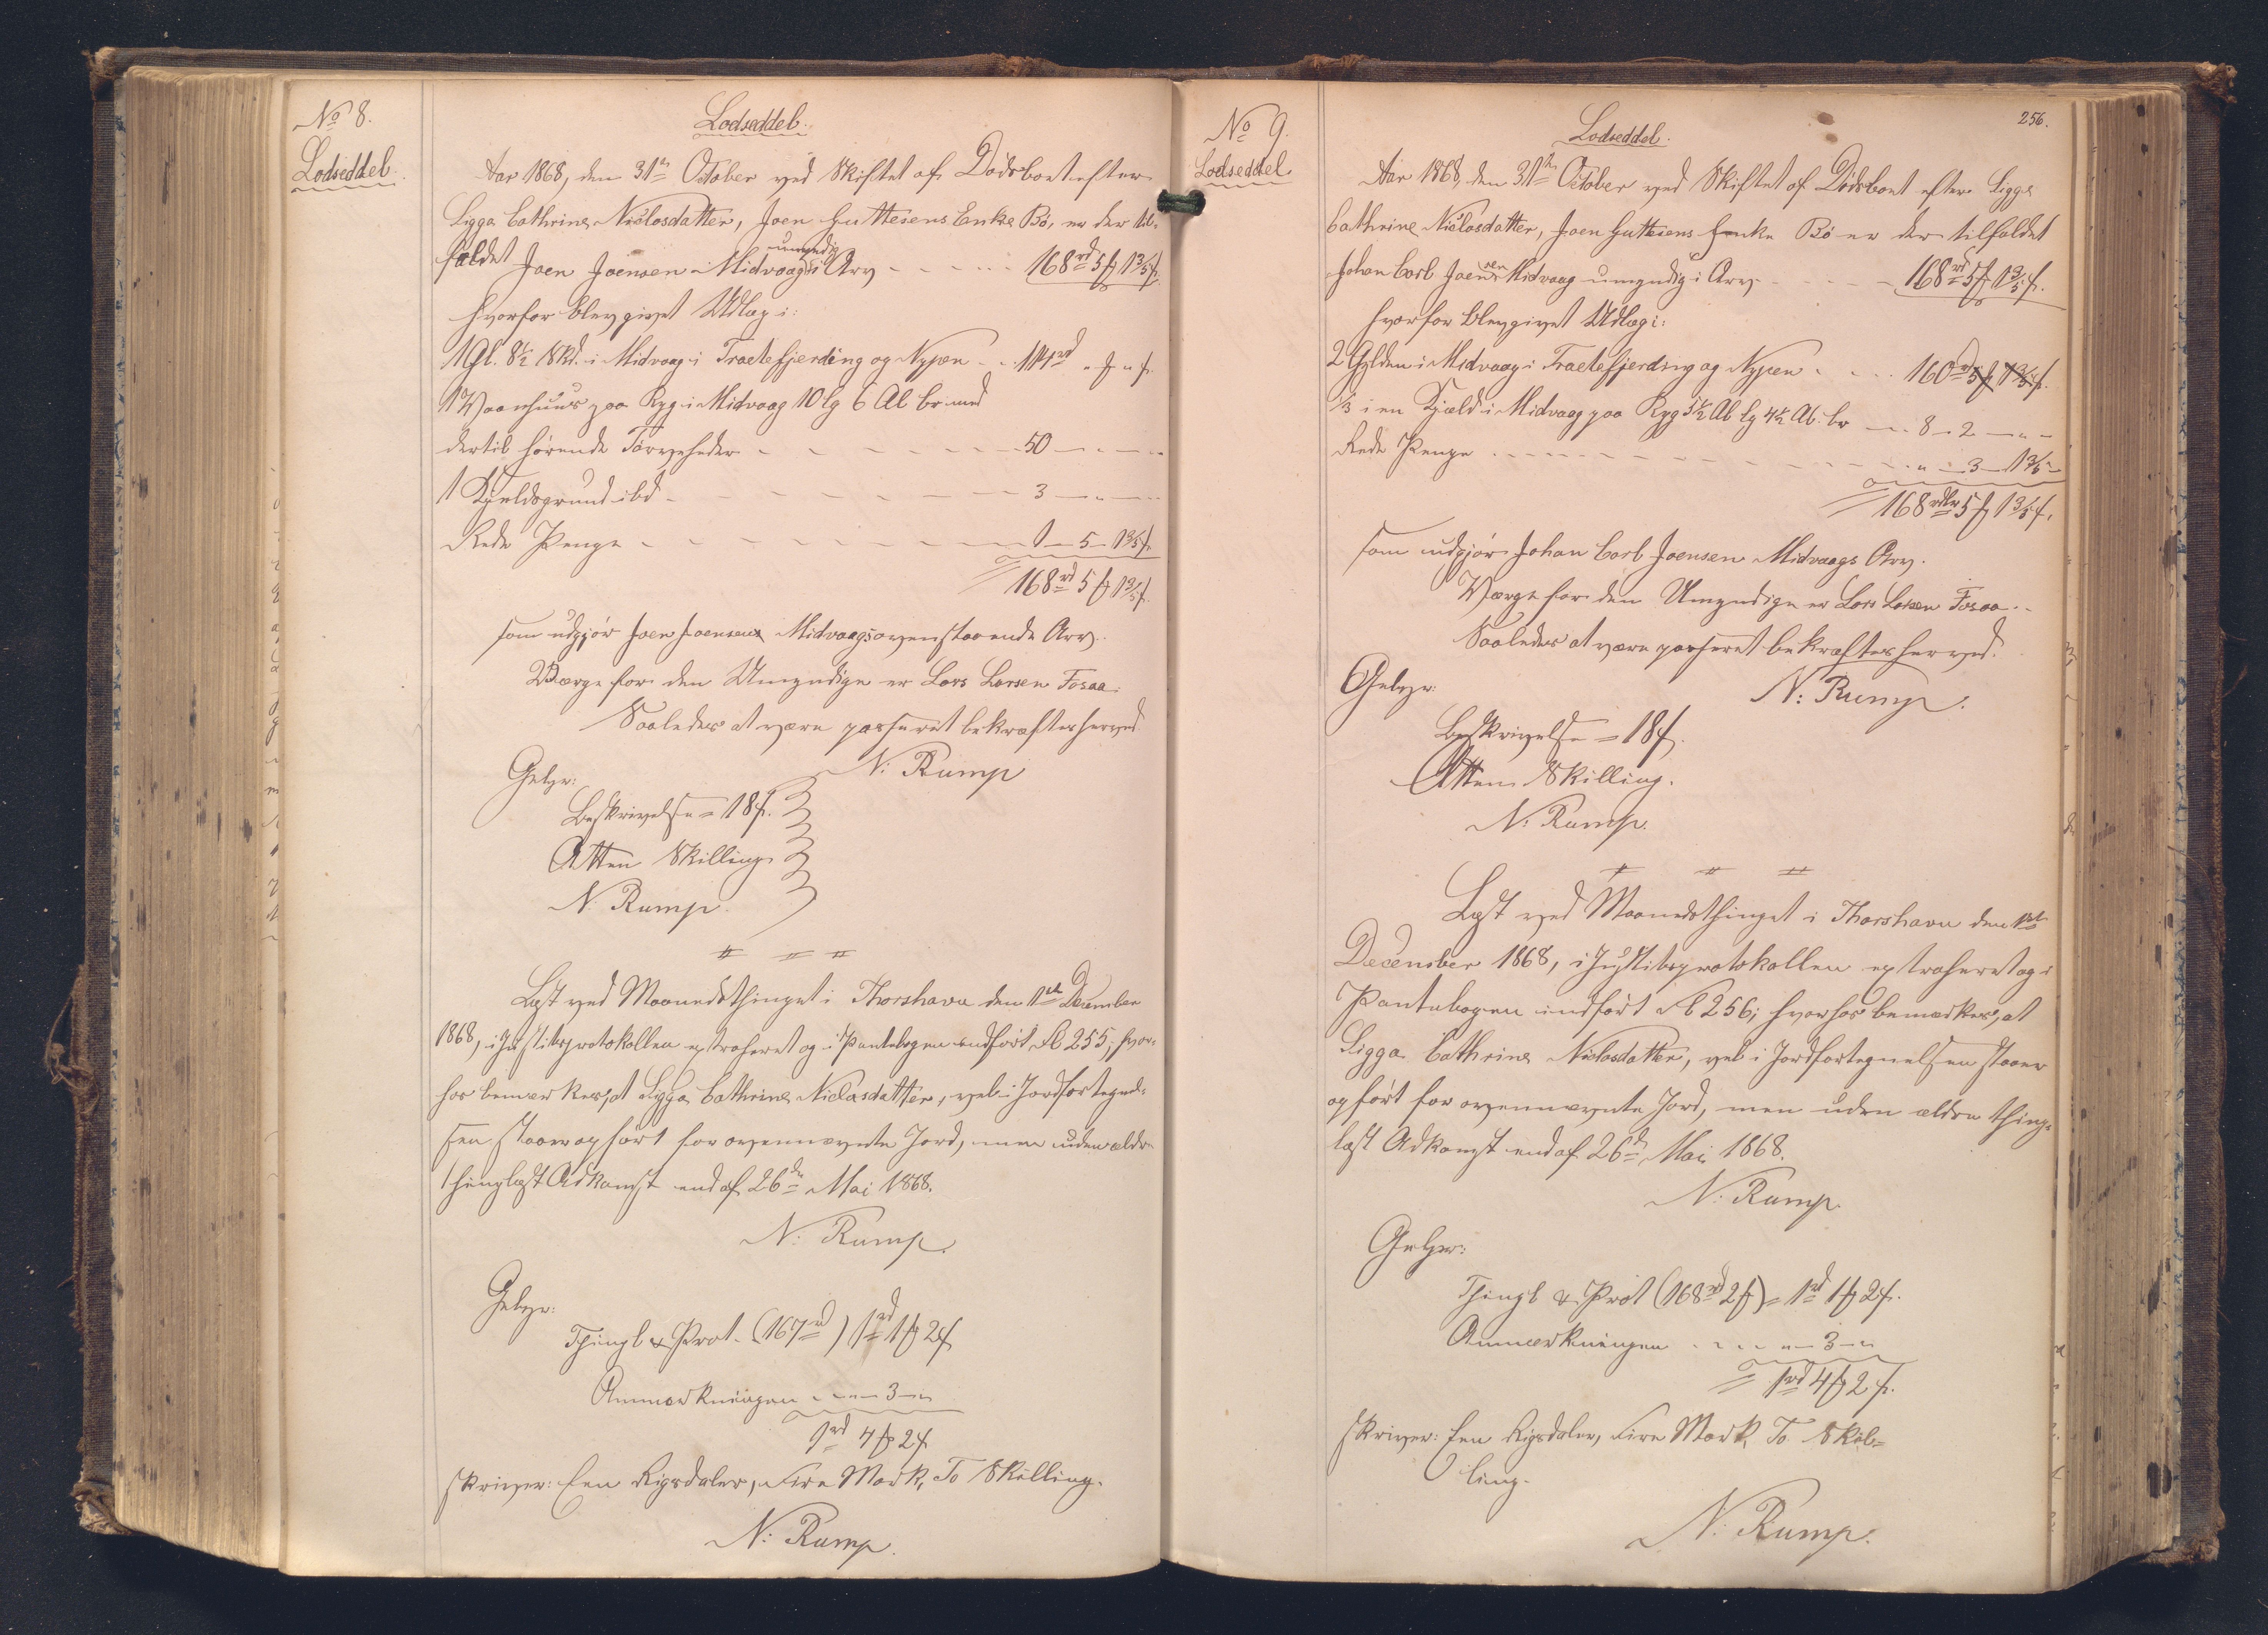 No 8.
Lodseddel.
Lodseddel.
Aar 1868, den 31te October ved Skiftet af Dødsboet efter
Sigga Cathrine Niclasdatter, Joen Guttesens Enke Bø, er der til-
faldet Joen Joensen Midvaag umyndig i Arv - - - - 168rd 5 ℳ 1 3/5 ß.
hvorfor blev givet Udlæg i:
1 Gl. 8½ Skd. i Midvaag i Traelefjerding og Nypen - - 114rd " ℳ " ß.
1 Vaanhuus paa Ryg i Midvaag 10 lg 6 Al br med
dertil hørende Tørveheder - - - - - - 50 - " - "
1 Kjeldsgrund ibd - - - - - - 3 - " - "
Rede Penge - - - - - - 1 - 5 - 1 3/5 ß
168rd 5 ℳ 1 3/5 ß.
som udgjør Joen Joensens Midvaags ovenstaaende Arv.
Værge for den Umyndige er Lars Larsen Fosaa.
Saaledes at være passeret bekræftes herved.
N: Rump
Gebyr:
Beskrivelse = 18 ß.
Atten Skilling.
N. Rump.
Læst ved Maanedsthinget i Thorshavn den 1ste December
1868, i Justitsprotokollen extraheret og i Pantebogen indført Fol 255; hvor-
hos bemærkes, at Sigga Cathrine Niclasdatter, vel i Jordfortegnel-
sen staaer opført for ovennævnte Jord, men uden ældre
thinglæst Adkomst end af 26de Mai 1868.
N: Rump.
Gebyr:
Thingl & Prot. (167rd) 1rd 1 ℳ 2 ß
Anmærkningen - - " - 3 - "
1rd 4 ℳ 2 ß
skriver: Een Rigsdaler, Fire Mark, To Skilling.
N: Rump.
256.
No 9.
Lodseddel.
Lodseddel.
Aar 1868, den 31te October ved Skiftet af Dødsboet efter Sigga
Cathrine Niclasdatter, Joen Guttesens Enke Bø er der tilfaldet
Johan Carl Joensen Midvaag umyndig i Arv - - - - 168rd 5 ℳ 1 3/5 ß.
hvorfor blev givet Udlæg i:
2 Gylden i Midvaag i Traelefjerding og Nypen - - - 160rd 5 ℳ 1 3/5 ß.
1/3 i en Kjæld i Midvaag paa Ryg 5½ Al lg 4½ Al. br - 8 - 2 - " -
Rede Penge - - - - - - " - 3 - 1 3/5 -
168rdlr 5 ℳ 1 3/5 ß.
som udgjør Johan Carl Joensen Midvaags Arv.
Værge for den Umyndige er Lars Larsen Fosaa.
Saaledes at være passeret bekræftes herved.
N: Rump.
Gebyr:
Beskrivelse = 18 ß.
Atten Skilling.
N. Rump.
Læst ved Maanedsthinget i Thorshavn den 1ste
December 1868, i Justitsprotokollen extraheret og i
Pantebogen indført Fol 256; hvorhos bemærkes, at
Sigga Cathrine Niclasdatter, vel i Jordfortegnelsen staaer
opført for ovennævnte Jord, men uden ældre thing-
læst Adkomst end af 26de Mai 1868.
N: Rump.
Gebyr:
Thingl & Prot (168rd 2 ℳ) = 1rd 1 ℳ 2 ß.
Anmærkningen - - - " - 3 - "
1rd 4 ℳ 2 ß.
skriver: Een Rigsdaler, Fire Mark, To Skil-
ling.
N. Rump.